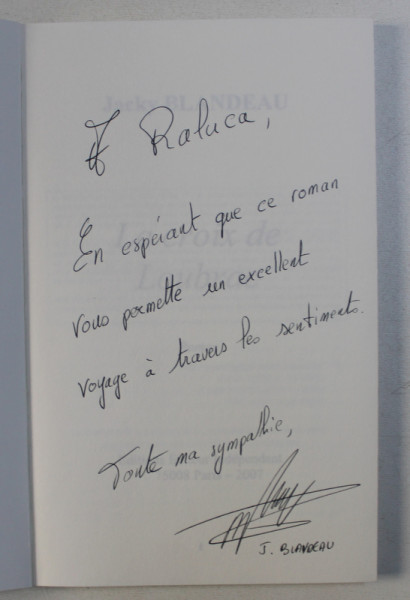 A Raluca,
En espérant que ce roman
vous permette un excellent
voyage à travers les sentiments.
Toute ma sympathie,
J. BLANDEAU
Jacky BLANDEAU
La croix de